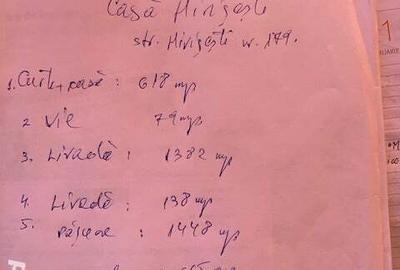 Casă Hirigești
str. Hirigești nr. 179.
1. Curte + casă : 618 mp
2 Vie 79 mp
3. Livadă : 1382 mp
4. Livadă : 138 mp
5. pășune : 1448 mp
1